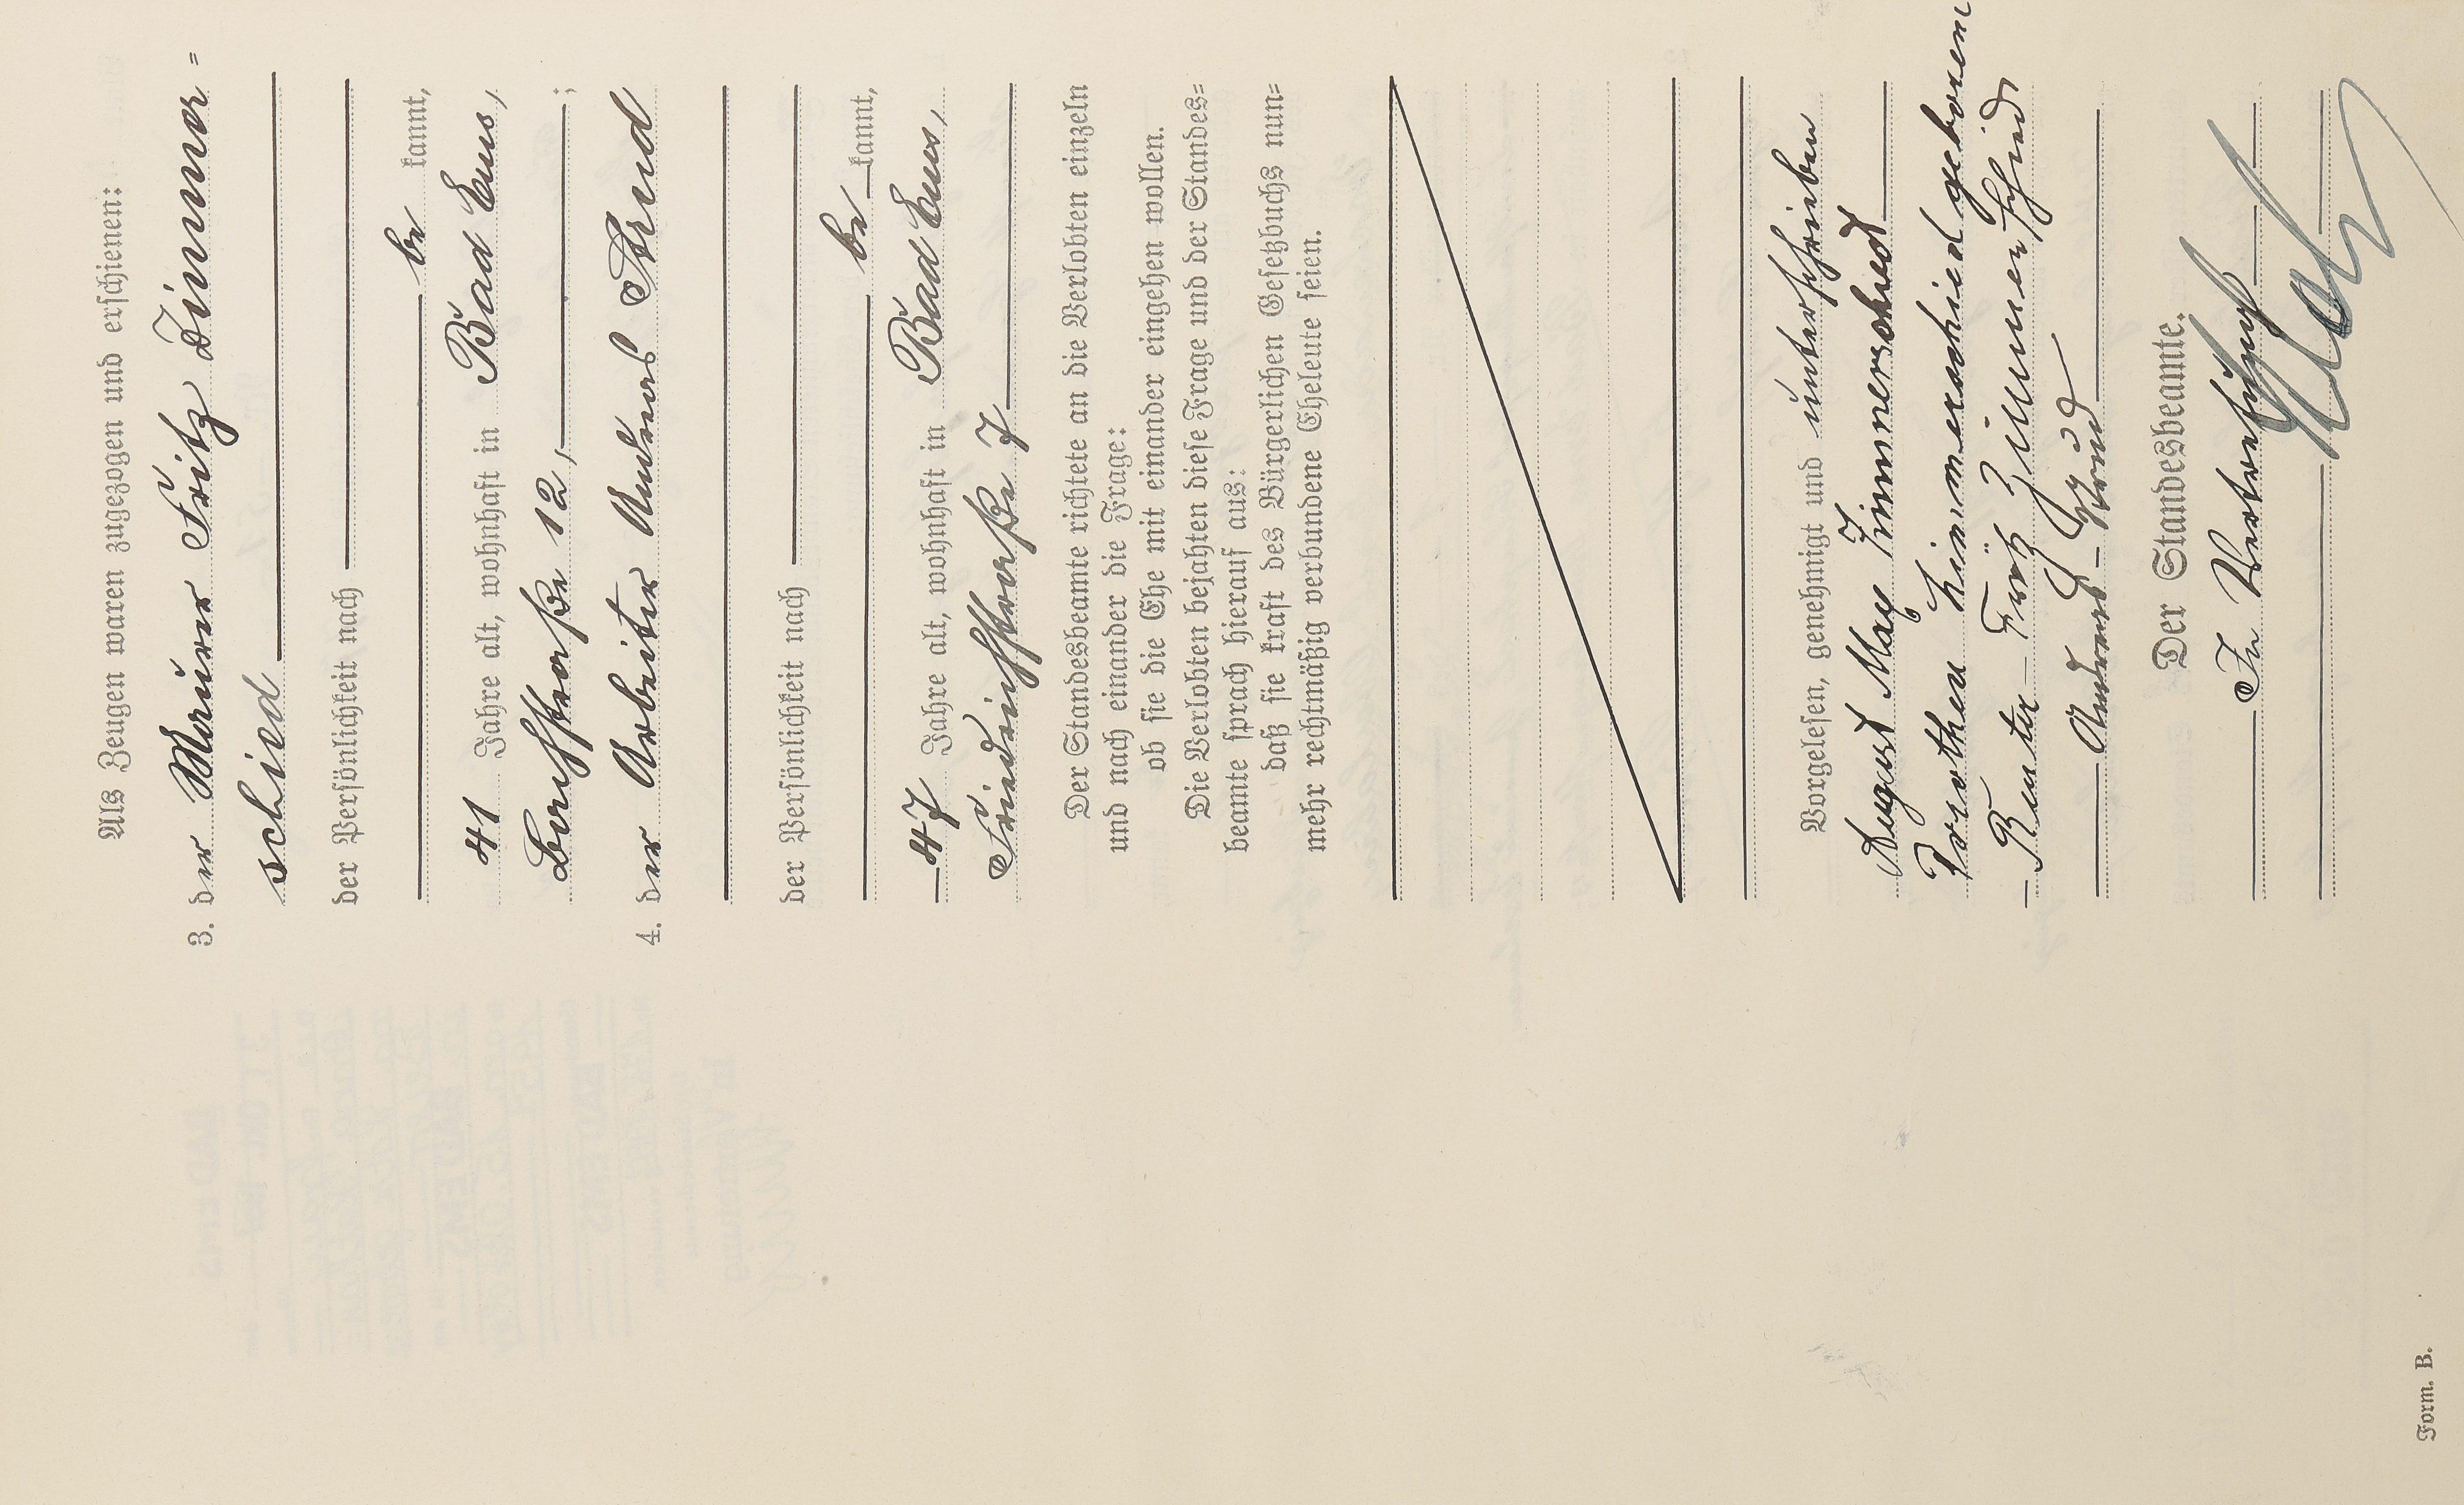 Als Zeugen waren zugezogen und erschienen:
3. der Maurer Fritz Zimmer=
schied
der Persönlichkeit nach
be kannt,
41 Jahre alt, wohnhaft in Bad Ems,
Bachstraße 12, ;
4. der Arbeiter Andreas
der Persönlichkeit nach
be kannt,
47 Jahre alt, wohnhaft in Bad Ems,
Friedrichstraße 7
Der Standesbeamte richtete an die Verlobten einzeln
und nach einander die Frage:
ob sie die Ehe mit einander eingehen wollen.
Die Verlobten bejahten diese Frage und der Standes=
beamte sprach hierauf aus:
daß sie kraft des Bürgerlichen Gesetzbuchs nun=
mehr rechtmäßig verbundene Eheleute seien.
Vorgelesen, genehmigt und unterschrieben
August Max Zimmerschied
Dorothea Zimmerschied geborene
Fritz Zimmerschied
Andreas
Der Standesbeamte.
In Vertretung
Form. B.